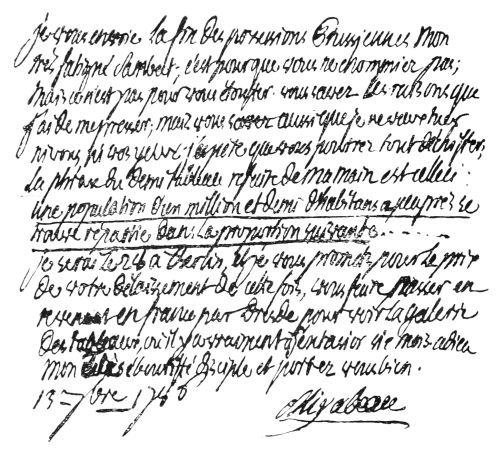 je vous envoie la fin des possessions Prussiennes Mon
très fatigué Lambert, c'est pour que vous ne chommiés pas;
mais ce n'est pas pour vous vous savez les raisons que
j'ai de me presser; mais vous savez aussi que je ne veux tuer
ni vous ni vos yeux. j'arrête que vous pourrez tout déchiffrer,
La phrase du demi tableau refaite de ma main est celle ci:
une population d'un million et demi d'habitans a peu près se
trouve répartie dans la proportion suivante.......
je serai le 28 à Berlin, et je vous promets pour le prix
de votre délaissement de cette fois, vous faire passer en
revenant en france par Dresde pour voir la galerie
des tableaux, où il y a vraiment d'extasier six mois. adieu
mon disciple et portez vous bien.
13 7bre 1786
Mirabeau